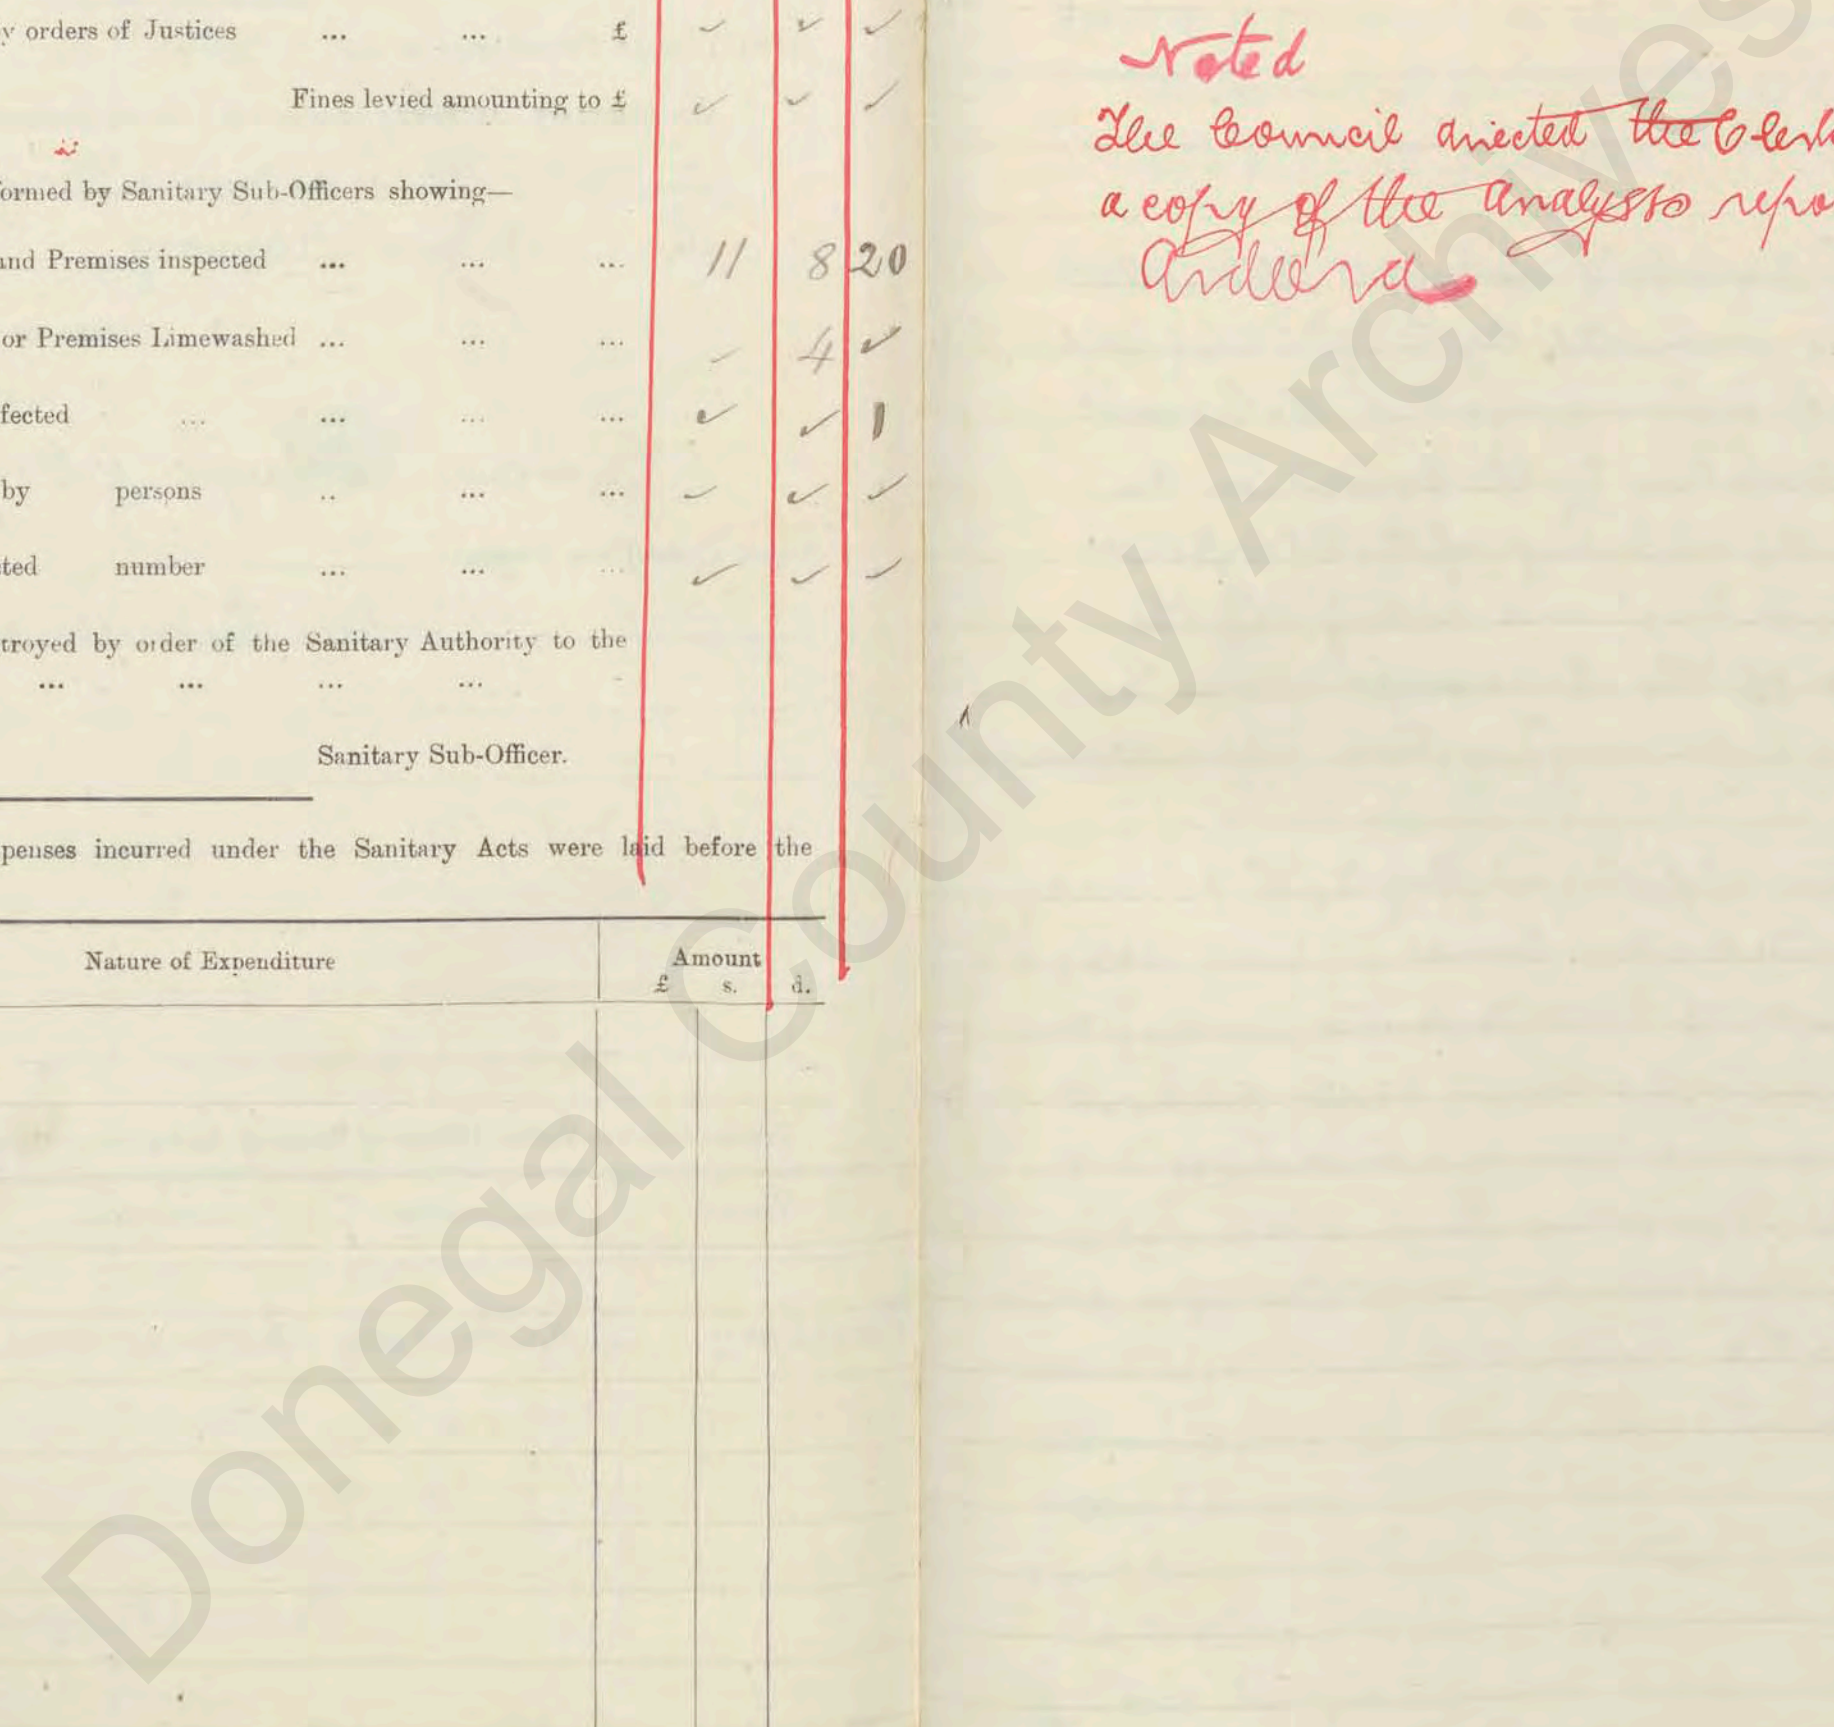 y orders of Justices ... ... £ ✓ ✓ ✓
Fines levied amounting to £ ✓ ✓ ✓
ormed by Sanitary Sub-Officers showing—
and Premises inspected ... ... ... 11 8 20
or Premises Limewashed ... ... ... ✓ 4 ✓
fected ... ... ... ... ✓ ✓ 1
by persons .. ... ... ✓ ✓ ✓
ted number ... ... ... ✓ ✓ ✓
troyed by order of the Sanitary Authority to the
... ... ... ...
Sanitary Sub-Officer.
penses incurred under the Sanitary Acts were laid before the
Nature of Expenditure Amount
£ s. d.
Noted
The Council directed the Clerk
a copy of the analysts repo
Ardara
Donegal County Archives